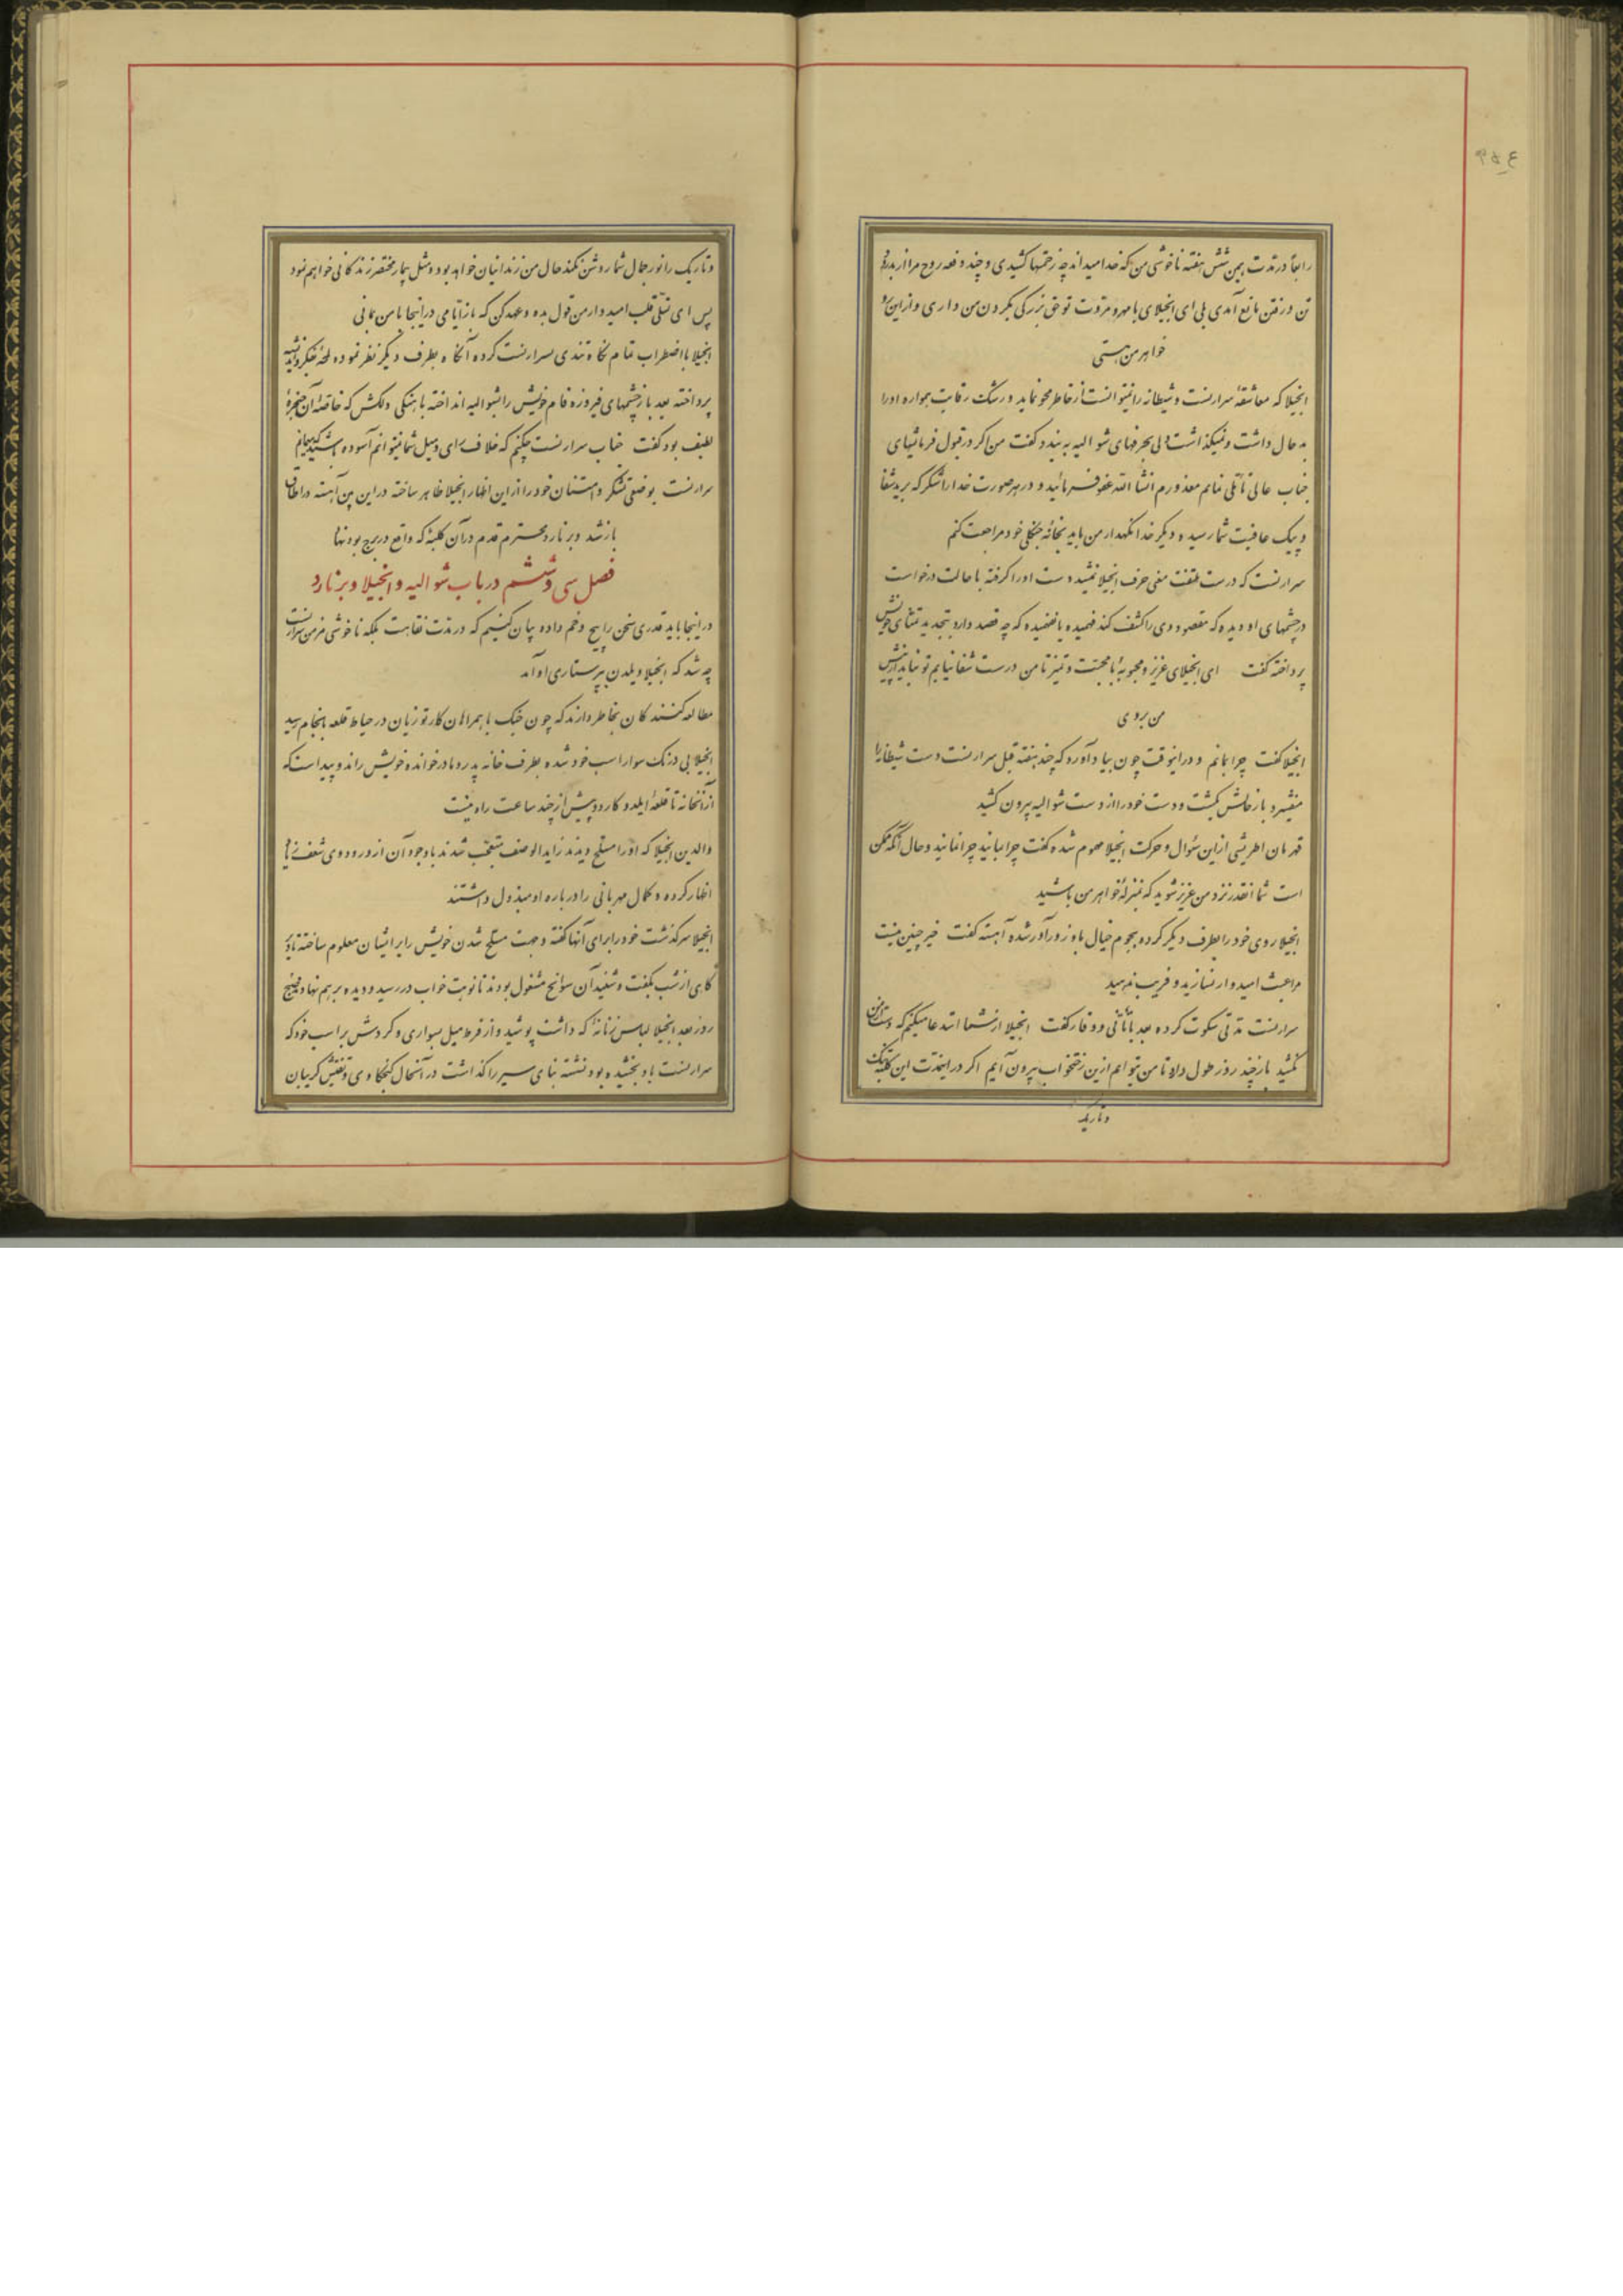 رابعاً در مدت بیمن شش هفته ناخوشی من که خدا میداند چه زحمتها کشیدی و چند دفعه روح مرا از بدر
تن و رفتن مانع آمدی بلی ای انجیلای با مهر و مروت تو حق بزرگی بکردن من داری و از این رو
خواهر من هستی
انجیلا که معاشقهٔ سرارنست و شیطانه را نمیتوانست از خاطر محو نماید و رشک رقابت همواره او را
بد حال داشت و نمیگذاشت دل بحرفهای شوالیه به بندد گفت من اگر در قبول فرمانهای
جناب عالی تأملی نمایم معذورم انشاءالله عفو فرمائید و در هر صورت خدا را شکر که برید شفا
و پیک عافیت شما رسید و دیگر خدا نگهدار من باید بخانهٔ جنگلی خود مراجعت کنم
سرارنست که درست ملتفت معنی حرف انجیلا نمیشد دست او را گرفته با حالت درخواست
در چشمهای او دیده که مقصود وی را کشف کند فهمیده یا نفهمیده که چه قصد دارد بتجدید تمنای خویش
پرداخته گفت ای انجیلای عزیز و محبوبهٔ با محبت و تمیز تا من درست شفا نیابم تو نباید از پیش
من بروی
انجیلا گفت چرا بمانم و در اینوقت چون بیاد آورد که چند هفته قبل سرارنست دست شیطانه را
میفشرد باز حالش بگشت و دست خود را از دست شوالیه بیرون کشید
قهرمان اطریشی از این سؤال و حرکت انجیلا مهموم شده گفت چرا بمانید چرا نمانید و حال آنکه ممکن
است شما انقدر نزد من عزیز شوید که بمنزلهٔ خواهر من باشید
انجیلا روی خود را بطرف دیگر کرده هجوم خیال باو زورآور شده آهسته گفت خیر چنین نیست
مرا عبث امیدوار نسازید و فریب ندهید
سرارنست مدتی سکوت کرده بعد بتأنی و وقار گفت انجیلا از شما استدعا میکنم که دست از من
نکشید باز چند روز طول دارد تا من بتوانم ازین رختخواب بیرون آیم اگر در اینمدت این کلبهٔ تنک
و تاریک
و تاریک را نور جمال شما روشن نکند حال من زندانیان خواهد بود و مثل بیمار محتضر زندگانی خواهم نمود
پس ای تسلی قلب امیدوار من قول بده و عهد کن که باز ایامی در اینجا با من بمانی
انجیلا با اضطراب تمام نگاه تندی بسرارنست کرده آنگاه بطرف دیگر نظر نموده لحظهٔ بفکر و اندیشه
پرداخته بعد باز چشمهای فیروزه فام خویش را بشوالیه انداخته باهنگی دلکش که خاصهٔ آن حنجرهٔ
لطیف بود گفت جناب سرارنست چکنم که خلاف رای و میل شما نمیتوانم آسوده باشید که میمانم
سرارنست بوضعی تشکر و امتنان خود را از این اظهار انجیلا ظاهر ساخته در این بین آهسته در اطاق
باز شد و برنارد محترم قدم در آن کلبهٔ که واقع در برج بود نهاد
فصل سی و ششم در باب شوالیه و انجیلا و برنارد
در اینجا باید قدری سخن را پیچ و خم داده بیان کنیم که در مدت نقاهت بلکه ناخوشی مزمن سرارنست
چه شد که انجیلا ویلدن بپرستاری او آمد
مطالعه کنندگان بخاطر دارند که چون جنک با همراهان کارتوزیان در حیاط قلعه بانجام رسید
انجیلا بی درنک سوار اسب خود شده بطرف خانه پدر و مادر خوانده خویش راند و پیداست که
از آنخانه تا قلعهٔ ایلدوکارد بیش از چند ساعت راه نیست
والدین انجیلا که او را مسلح دیدند زایدالوصف متعجب شدند باوجود آن از ورود وی شعفی
اظهار کرده و کمال مهربانی را درباره او مبذول داشتند
انجیلا سرگذشت خود را برای آنها گفته و جهت مسلح شدن خویش را بر ایشان معلوم ساخته تا
گاهی از شب بگفت و شنید آن سوانح مشغول بودند تا نوبت خواب در رسید و دیده بر هم نهادند صبح
روز بعد انجیلا لباس زنانهٔ که داشت پوشید و از فرط میل بسواری و گردش بر اسب خود که
سرارنست باو بخشیده بود نشسته بنای سیر را گذاشت در آنحال کنجکاوی و تفتیش گریبان